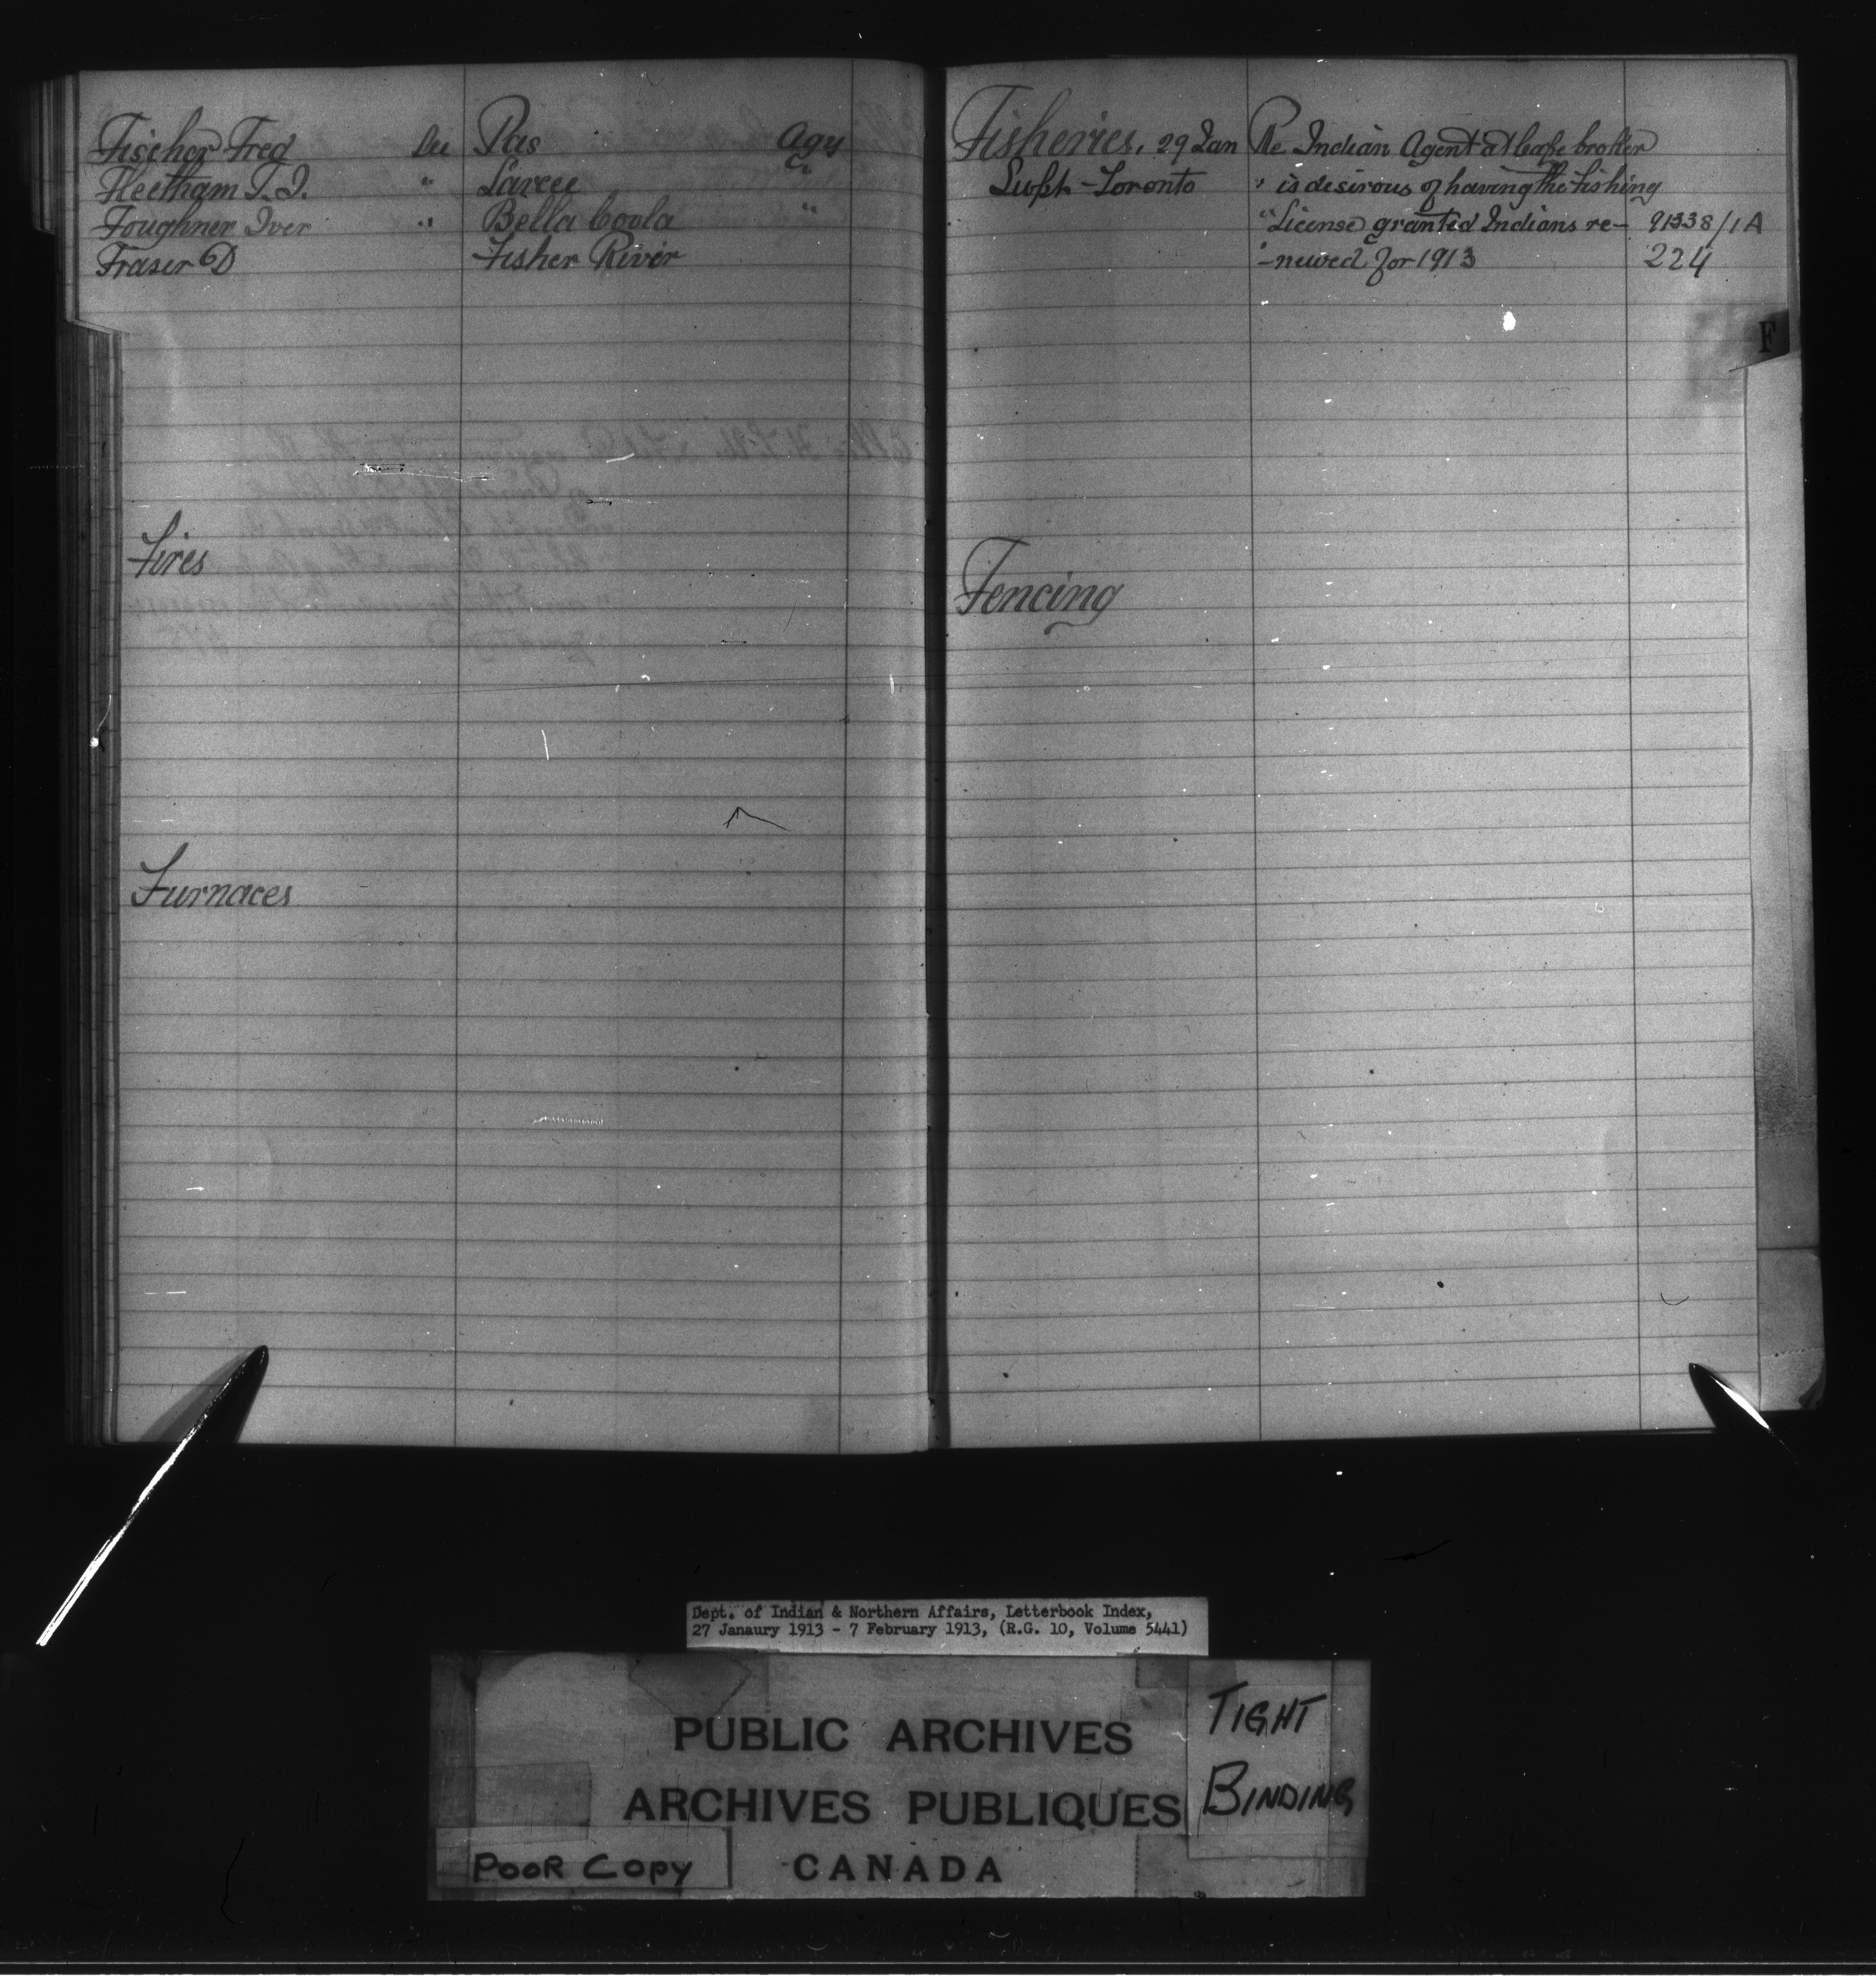 Fischer Fred See Pas Agy
Fleetham T. J. " Sarcee "
Foughner Iver " Bella Coola "
Fraser D Fisher River
Fires
Furnaces
Fisheries, 29 Jan Re Indian Agent at Cape Croker
Supt - Toronto " is desirous of having the Fishing
" License granted Indians re- 91338/1A
" -newed for 1913 224
F
Fencing
Dept. of Indian & Northern Affairs, Letterbook Index,
27 Janaury 1913 - 7 February 1913, (R.G. 10, Volume 5441)
PUBLIC ARCHIVES
ARCHIVES PUBLIQUES
CANADA
TIGHT
BINDING
POOR COPY